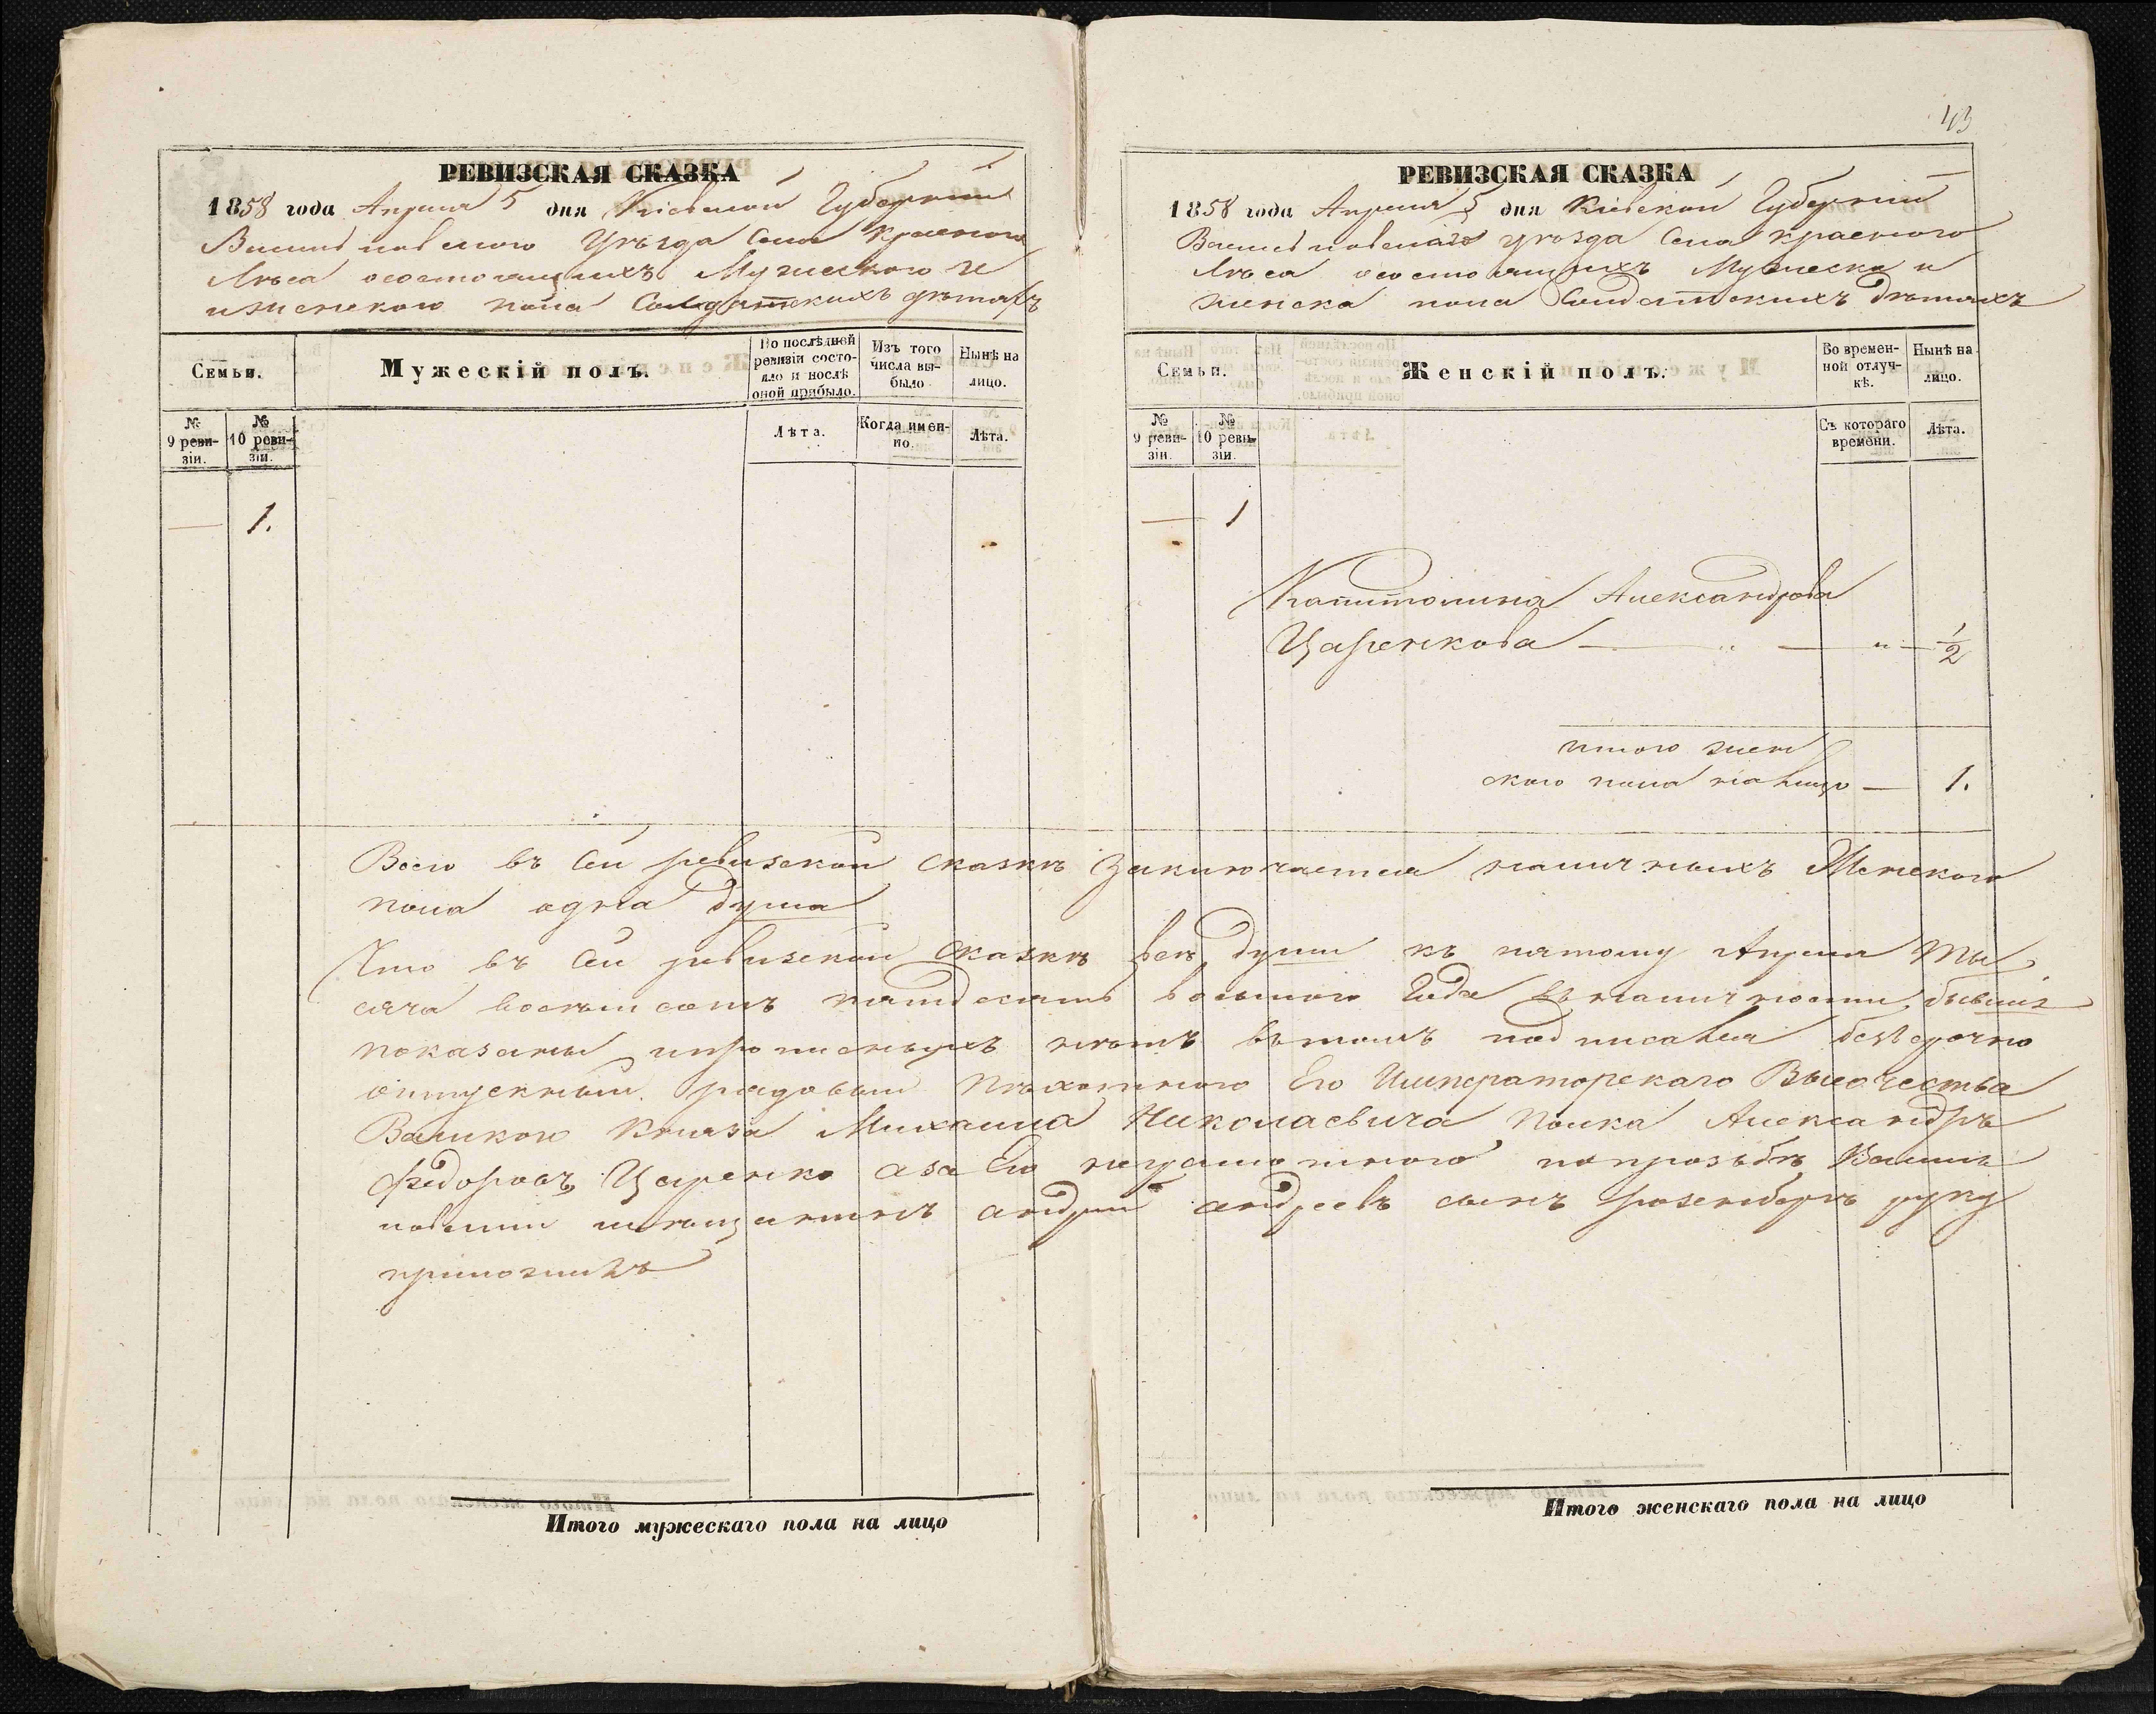 РЕВИЗСКАЯ СКАЗКА
1858 года Апреля 5 дня Кіевской Губерніи
Васильковского Уѣзда Села Красного
Лѣса осостоящихъ Мужеского и
иженского пола Солдатскихъ дѣтяхъ
Семьи.
Мужескій полъ.
По послѣдней ревизіи состояло и послѣ оной прибыло.
Изъ того числа выбыло
Нынѣ на лицо.
№ 9 ревизіи.
№ 10 ревизіи.
Лѣта.
Когда именно.
Лѣта.
— 1.
43
РЕВИЗСКАЯ СКАЗКА
1858 года Апреля 5 дня Кіевской Губерніи
Васильковского уѣзда Села Красного
Лѣса осостоящихъ Мужеска и
женска пола Солдатскихъ дѣтяхъ
Семьи.
Женскій полъ.
Во временной отлучкѣ.
Нынѣ на лицо.
№ 9 ревизіи.
№ 10 ревизіи.
Съ котораго времени.
Лѣта.
— 1
Капитолина Александрова
Царенкова — " — " — 1/2
итого жен
ского пола на лицо — 1.
Всего въ Сей ревизской сказкѣ заключается наличныхъ Женского
пола одна душа
Что въ Сей ревизской сказкѣ всѣ души къ пятому Апреля Ты
сяча восемьсотъ пятдесятъ восьмого Года въ наличности бывшіе
показаны ипрописныхъ нетъ въ томъ подписался безсрочно
отпускный рядовый Пѣхотного Его Императорскаго Высочества
Великого Князя Михаила Николаевича полка Александръ
Федоровъ Царенко аза Его неграмотного попрозьбѣ Василь
ковскій мѣщанинъ андрей андреевъ сынъ розенбергъ руку
приложилъ
Итого мужескаго пола на лицо
Итого женскаго пола на лицо